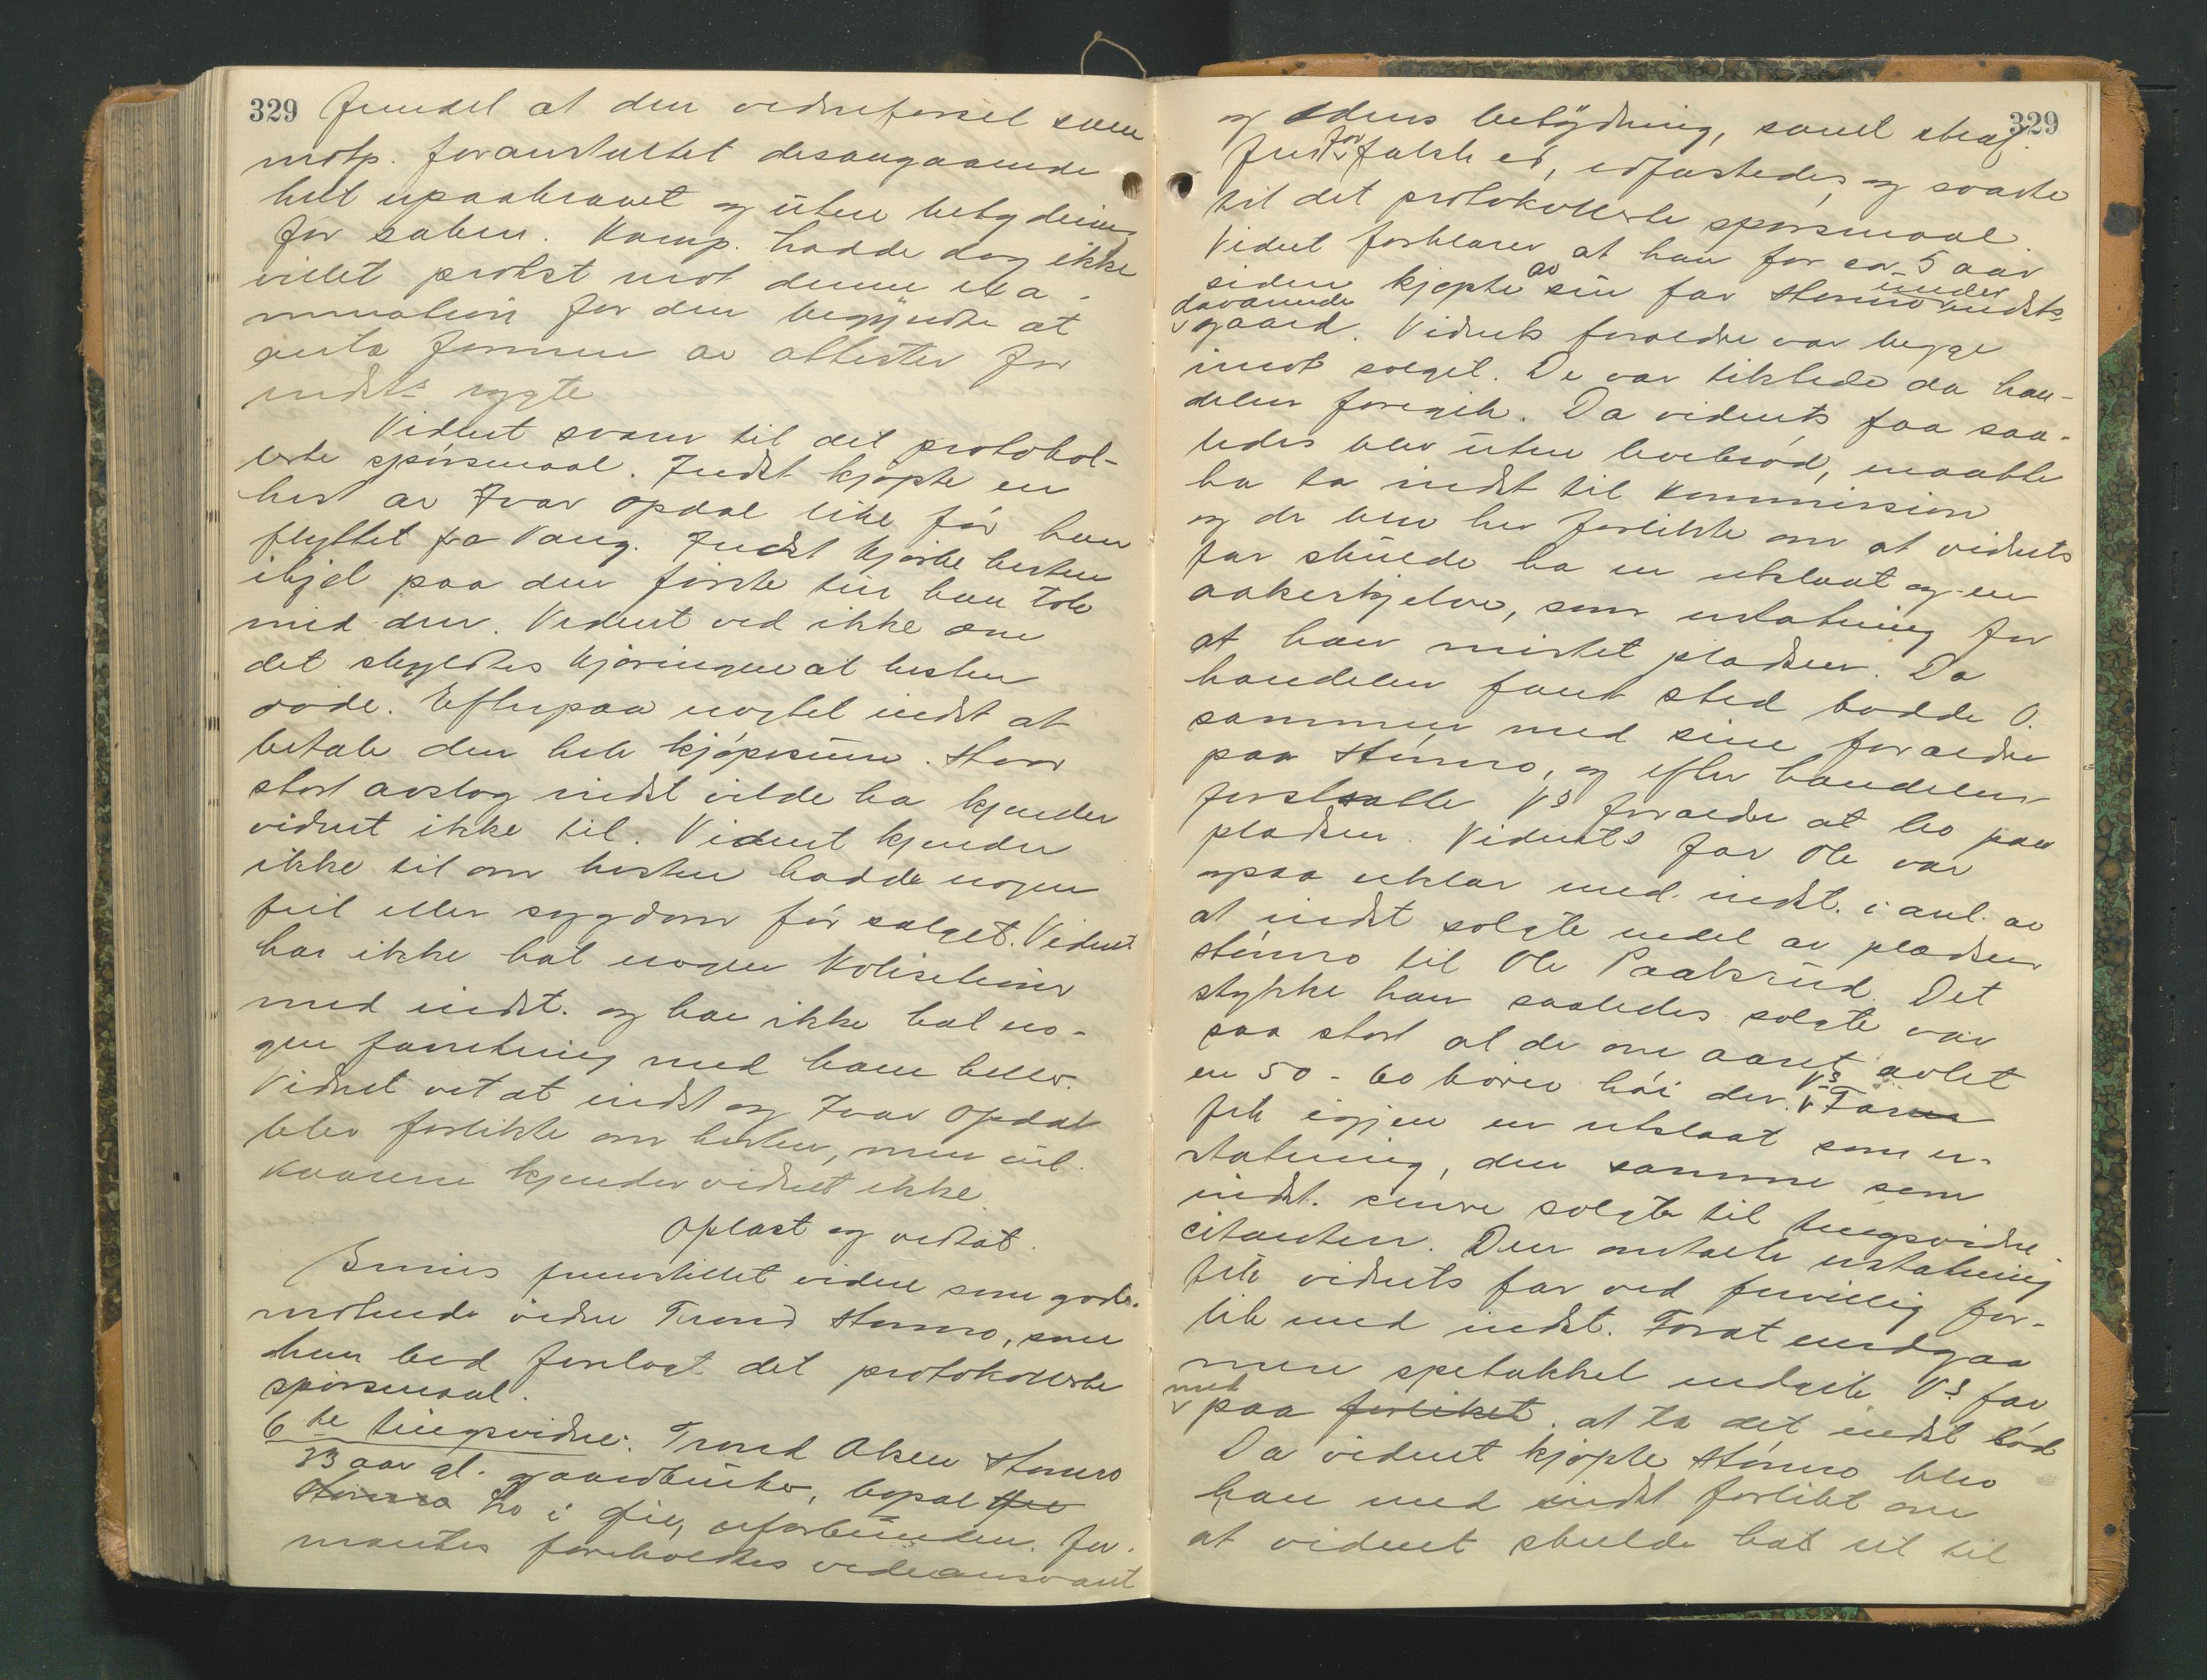 329
fundet at den vidneførsel som
motp. foranstaltet desangaaende
helt upaakrævet og uten betydning
for saken. Komp. hadde dog ikke
villet protest mot denne exa-
mination før den begyndte at
anta formen av attester for
indsts rygte.
Vidnet svarer til det protokol-
lerte spørsmaal. Indst kjøpte en
hest av Ivar Opdal like før han
flyttet fra Vang. Indst kjørte hesten
ihjel paa den første tur han tok
med den. Vidnet ved ikke om
det skyldtes kjøringen at hesten
døde. Efterpaa negtet indst at
betale den hele kjøpesum. Hvor
stort avslag indst vilde ha kjender
vidnet ikke til. Vidnet kjender
ikke til om hesten hadde nogen
feil eller sygdom før salget. Vidnet
har ikke hat nogen kolisioner
med indst. og har ikke hat no-
gen forretning med ham heller.
Vidnet vet at indst og Ivar Opdal
blev forlikte om hesten, men vil-
kaarene kjender vidnet ikke.
Oplæst og vedtat.
Bruus fremstillet videre som godv.
møtende vidne Trond Stønro, som
han bad forelagt det protokollerte
spørsmaal.
6te tingsvidne: Trond Olsen Stønro
33 aar gl. gaardbruker, bopæl
Stønro Ho i Øie, uforbunden. For-
mantes foreholdtes vidneansvaret
329
og edens betydning, samt straf-
for falsk ed, edfæstedes og svarte
til det protokollerte spørsmaal.
Vidnet forklarer at han for ca. 5 aar
siden kjøpte av sin far Stønro under indsts
daværende gaard. Vidnets forældre var begge
imot salget. De var tilstede da han-
delen foregik. Da vidnets far saa-
ledes blev uten levebrød, maatte
ha ta indst til kommission
og de blev her forlikte om at vidnets
far skulde ha en utslaat og en
aakerhjelve, som erstatning for
at han mistet pladsen. Da
handelen fant sted bodde O.
sammen med sine forældre
paa Stønro, og efter handelen
fortsatte Vs forældre at bo paa
pladsen. Vidnets far Ole var
ogsaa uklar med indst. i anl. av
at indst solgte endel av pladsen
Stønro til Ole Paalsrud. Det
stykke han saaledes solgte var
saa stort at de om aaret avlet
en 50-60 bører høi der. Vs Far
fik igjen en utslaat som er-
statning, den samme som
indst. senere solgte til tingsvidne
citanten. Den omtalte erstatning
fik vidnets far ved frivillig for-
lik med indst. Forat undgaa
mere spetakkel indgik Vs far
med paa forliket. at ta det indst bød.
Da vidnet kjøpte Stønro blev
han med indst forlikt om
at vidnet skulde hat ut til